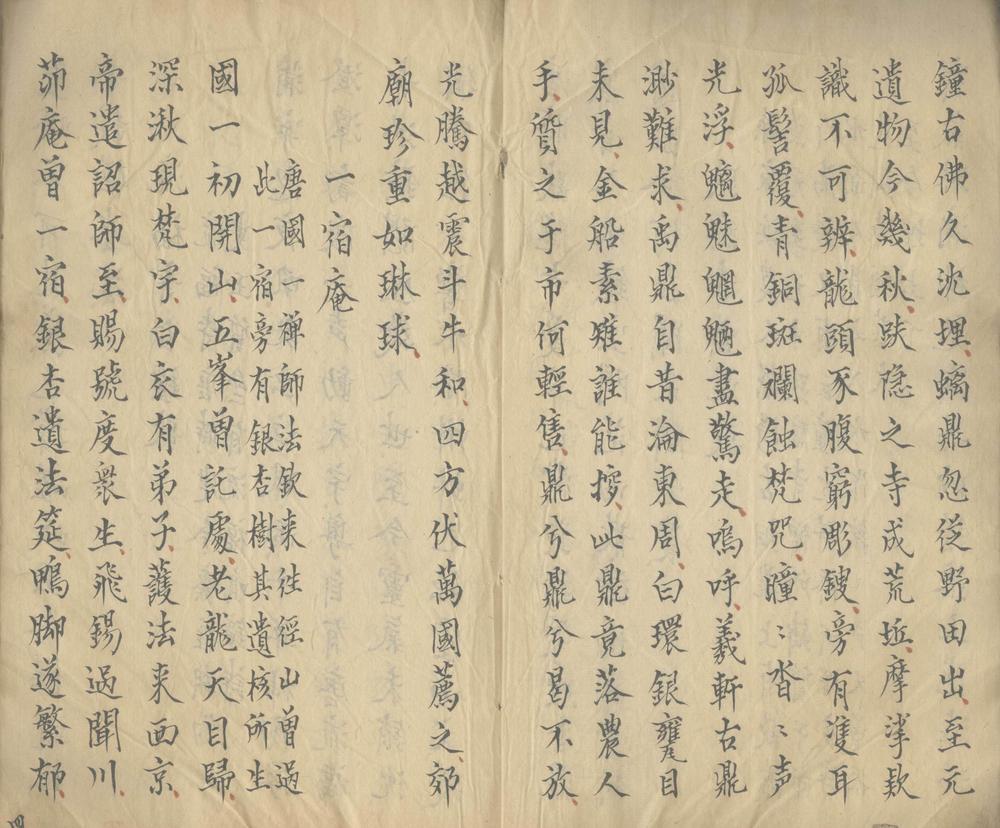 鐘古佛久沈埋、螭鼎忽從野田出、至元
遺物今幾秋、跌隐之寺成荒坵、摩挲欵
識不可辨、龍頭豕腹窮彫鎪、旁有隻耳
孤髻覆、青銅斑斕蝕梵咒、瞳〻沓〻声
光浮、魑魅魍魎盡驚走、嗚呼、羲軒古鼎
渺難求、禹鼎自昔淪東周、白環銀甕目
未見、金船素雉誰能摉、此鼎竟落農人
手、質之于市何輕售、鼎兮鼎兮曷不放
光騰越震斗牛、和四方伏萬國薦之郊
廟珍重如琳球、
一宿庵
唐國一禅師法欽来往徑山曾過
此一宿旁有銀杏樹其遺核所生
國一初開山、五峯曾託處、老龍天目歸、
深湫現梵宇、白衣有弟子、護法来西京
帝遣詔師至、賜號度衆生、飛錫過聞川、
茆庵曾一宿、銀杏遺法筵、鴨脚遂繁郁、
四